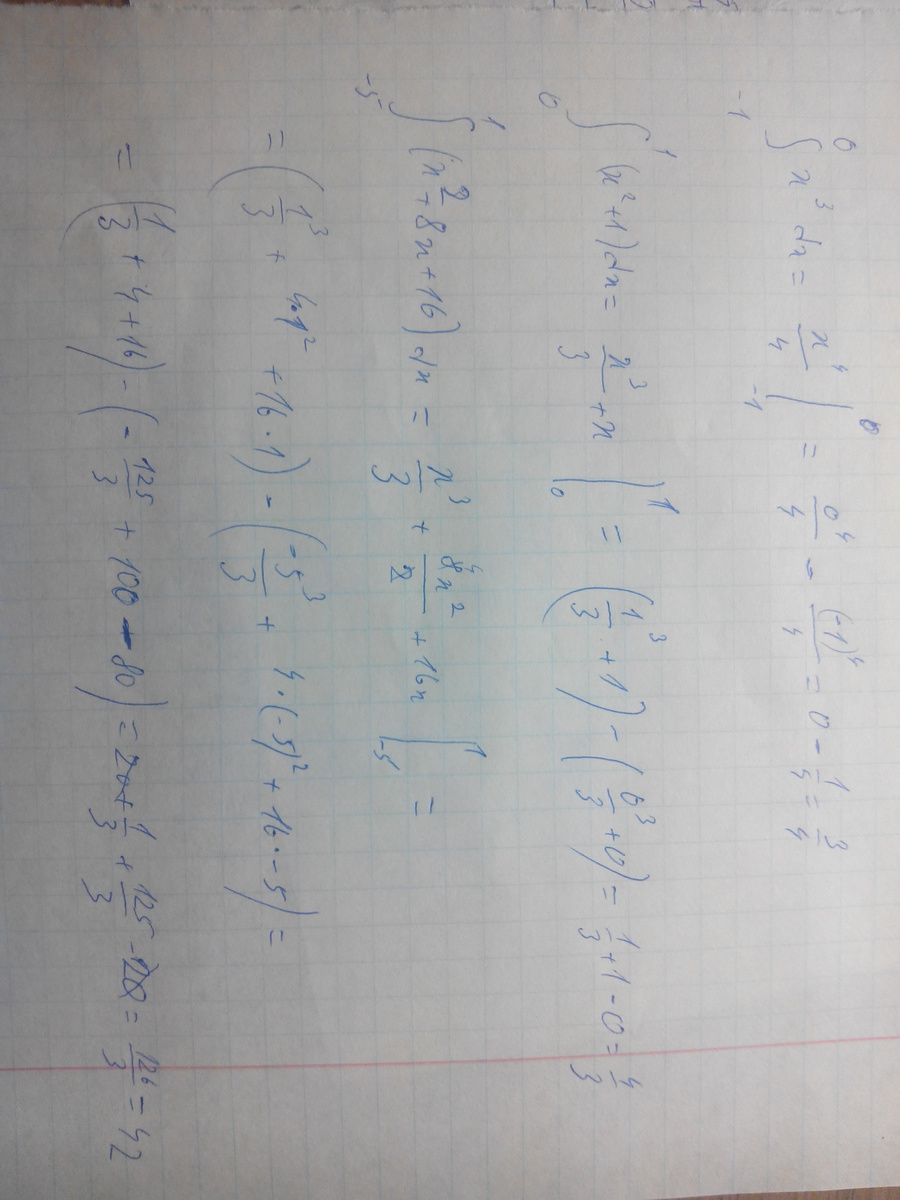 -1∫0 x³ dx = x⁴/4 |0 -1 = 0⁴/4 - (-1)⁴/4 = 0 - 1/4 = 3/4
0∫1 (x²+1)dx = x³/3 + x |1 0 = (1³/3 + 1) - (0³/3 + 0) = 1/3 + 1 - 0 = 4/3
-5∫1 (x² + 8x + 16) dx = x³/3 + 8x²/2 + 16x |1 -5 =
= (1³/3 + 4·1² + 16·1) - (-5³/3 + 4·(-5)² + 16·-5) =
= (1/3 + 4 + 16) - (-125/3 + 100 - 80) = 20 + 1/3 + 125/3 - 20 = 126/3 = 42